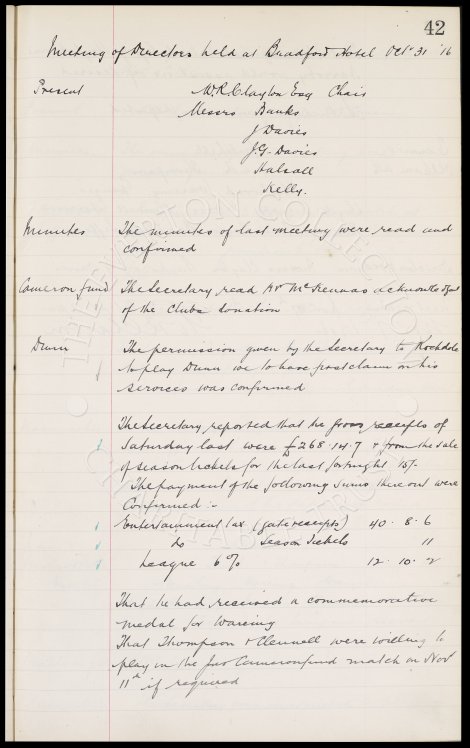 42
Meeting of Directors held at Bradford Hotel Octr 31 '16
Present W.R. Clayton Esq Chair
Messrs Banks
J Davies
J.G. Davies
Halsall
Kelly.
Minutes The minutes of last meeting were read and
confirmed
Cameron Fund The Secretary read Dr McKennas acknowledgmt
of the Clubs donation
Dunn The permission given by the Secretary to Rochdale
to play Dunn we to have post claim on his
services was confirmed
The Secretary reported that the gross receipts of
Saturday last were £268.14.7 & from the sale
of season tickets for the last fortnight 15/-
The payment of the following sums there out were
Confirmed :-
Entertainment tax (gate receipts) 40. 8. 6
do Season Tickets 11
League 6% 12. 10. 2
That he had received a commemorative
medal for Wareing
That Thompson & Clennell were willing to
play in the Jno Cameron fund match on Nov
11th if required
THE EVERTON COLLECTION
CHARITABLE TRUST